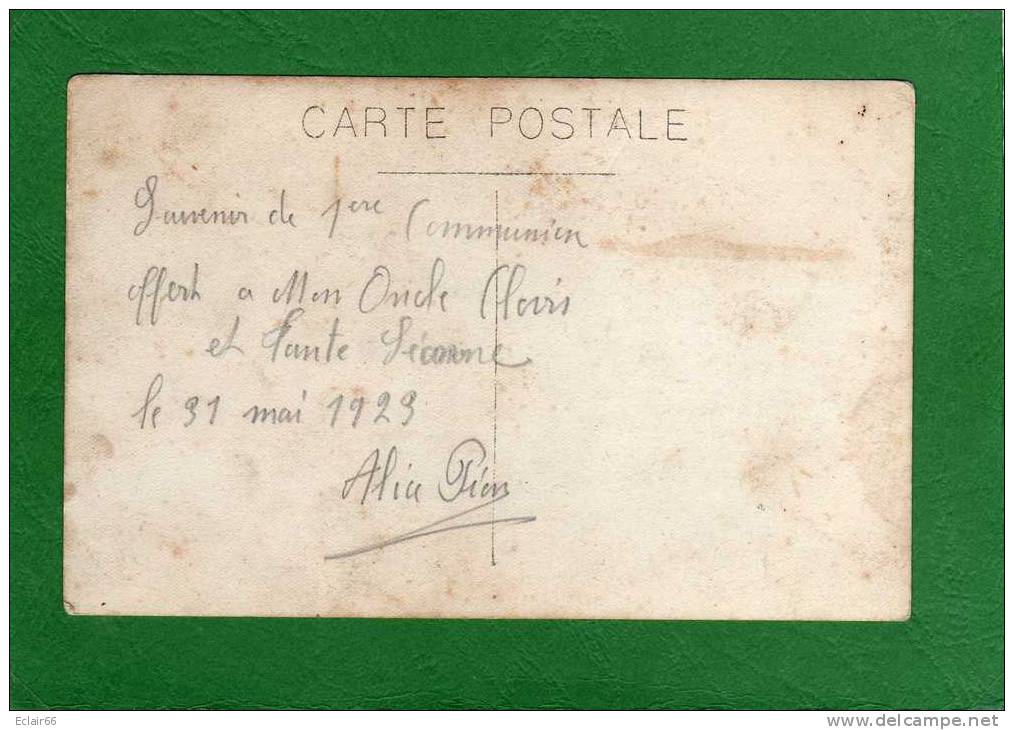 CARTE POSTALE
Souvenir de 1ere Communion
offert a Mon Oncle Clovis
et Tante Léonne
le 31 mai 1923
Alice
Eclair66
www.delcampe.net